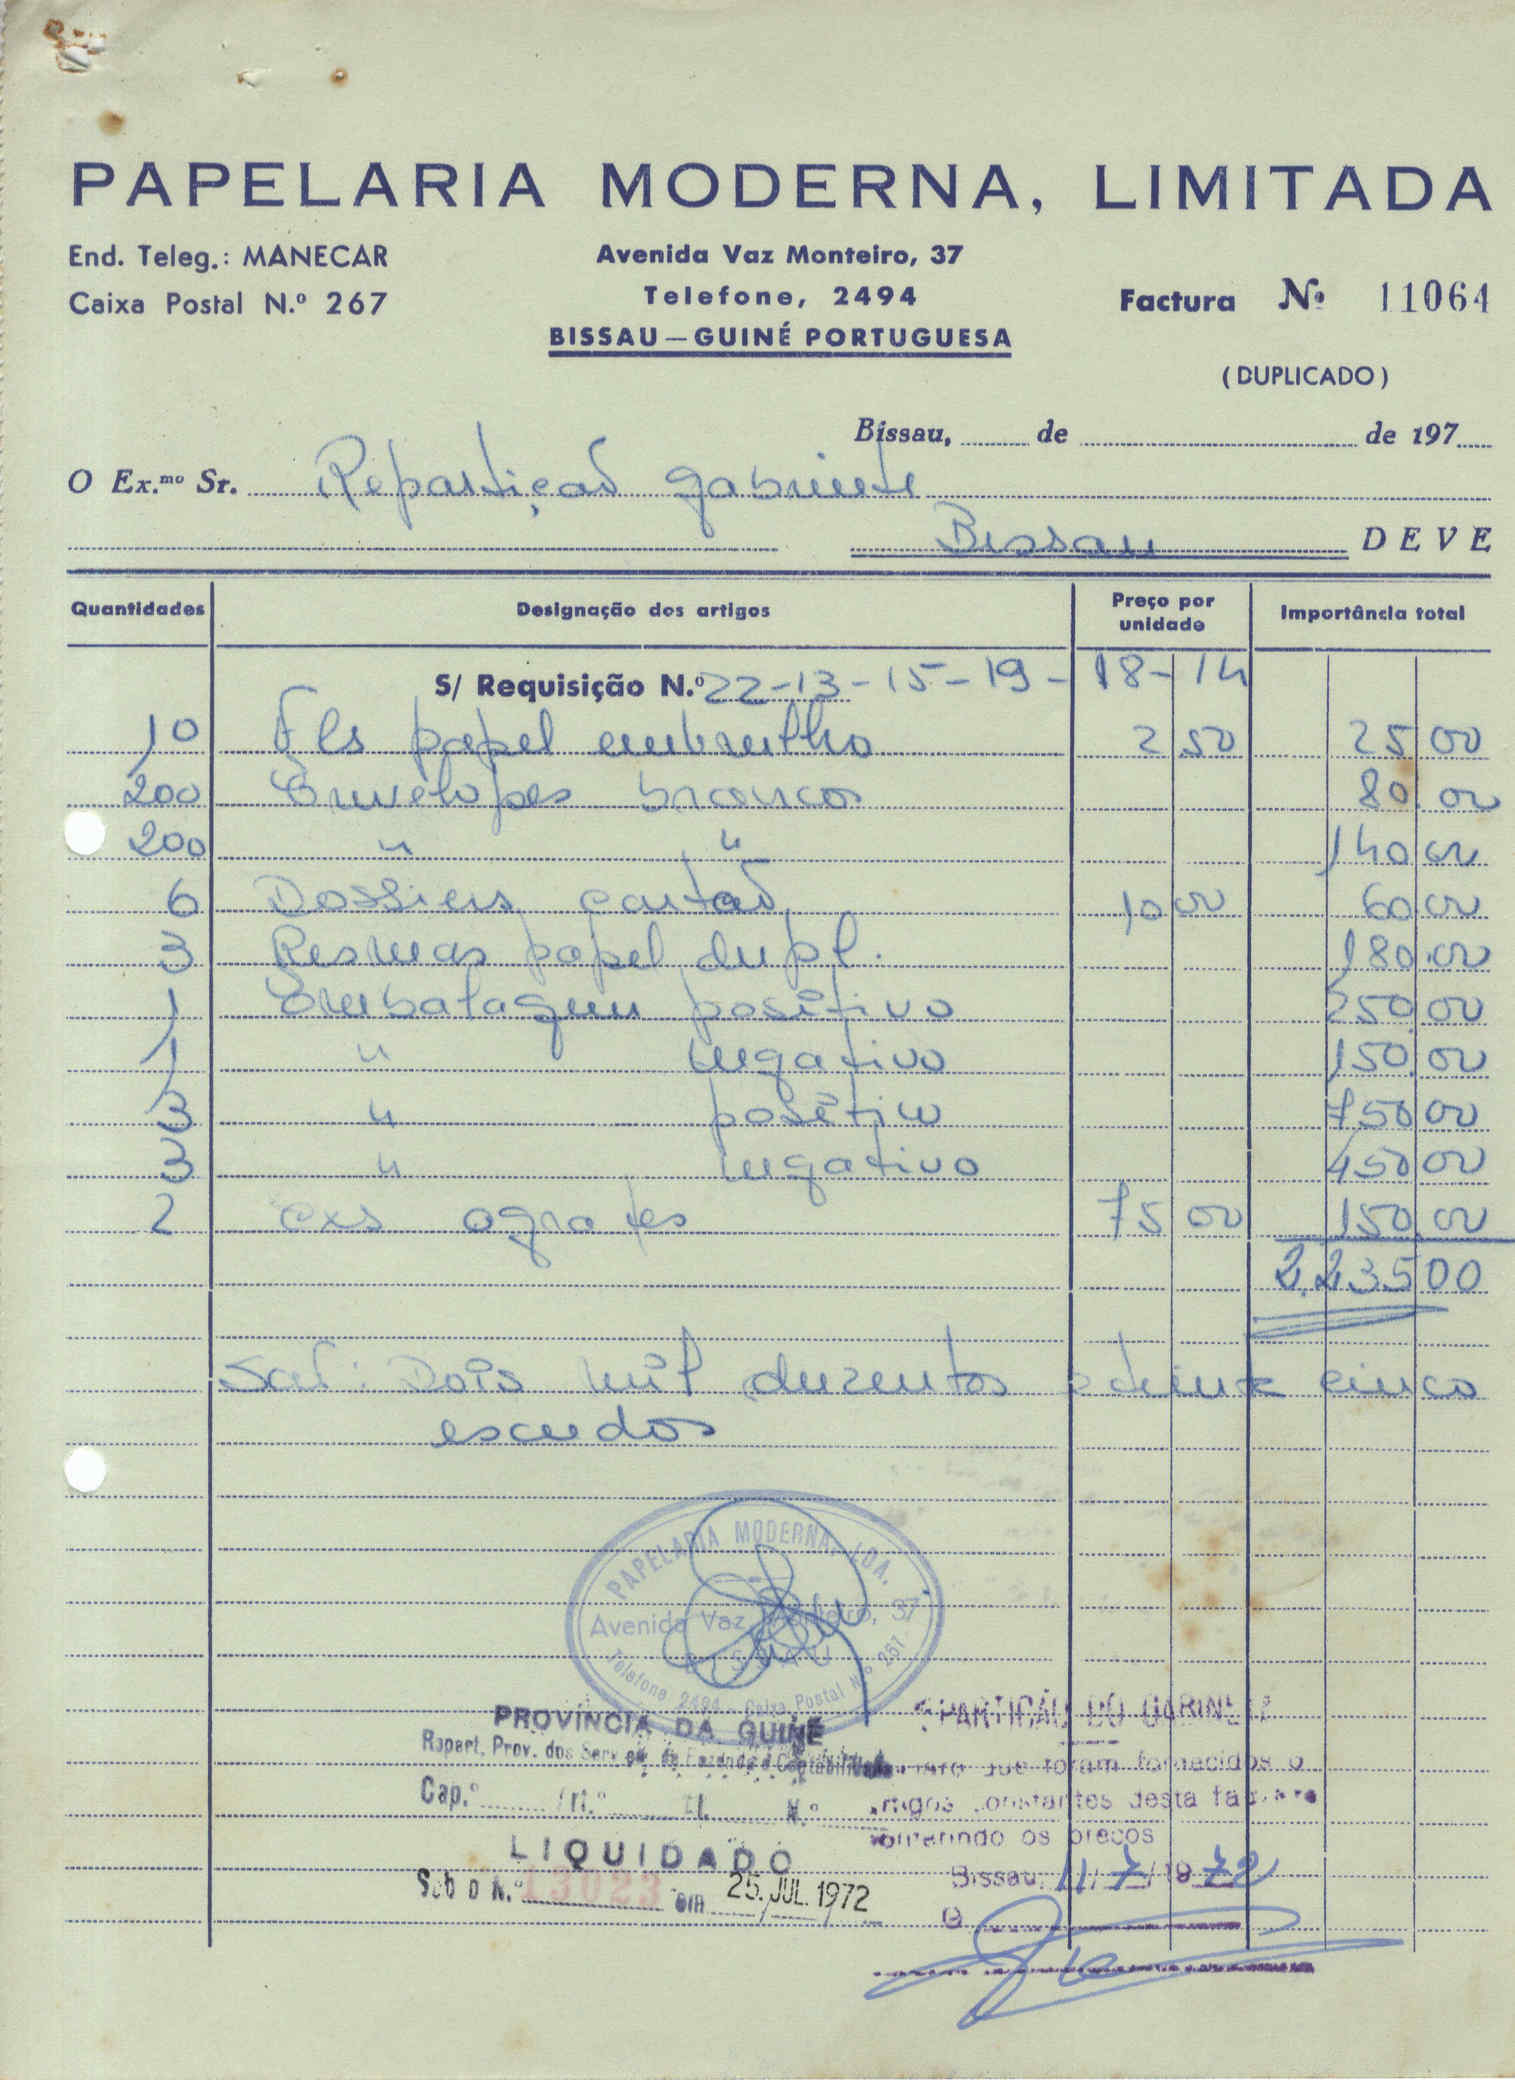 PAPELARIA MODERNA, LIMITADA
End. Teleg.: MANECAR
Caixa Postal N.º 267
Avenida Vaz Monteiro, 37
Telefone, 2494
BISSAU — GUINÉ PORTUGUESA
Factura Nº 11064
(DUPLICADO)
Bissau, de de 197
O Ex.mo Sr. Repartição gabinete
Bissau DEVE
Quantidades Designação dos artigos Preço por unidade Importância total
S/ Requisição N.º 22-13-15-19-18-14
10 Fls papel embrulho 2 50 25 00
200 Envelopes brancos 80.00
200 " " 140 00
6 Dossiers cartão 10 00 60 00
3 Resmas papel dupl. 180.00
1 Embalagem positivo 250.00
1 " negativo 150.00
3 " positivo 750 00
3 " negativo 450 00
2 cxs agrafes 75 00 150.00
2.235 00
Dois mil duzentos e trinta cinco
escudos
PAPELARIA MODERNA, LDA.
Avenida Vaz Monteiro, 37
BISSAU
Telefone 2494 - Caixa Postal N.º 267
PROVÍNCIA DA GUINÉ
Repart. Prov. dos Serviços de Fazenda e Contabilidade
Cap.º Art.º N.º
LIQUIDADO
Sob o N.º 13023 em 25. JUL. 1972
REPARTIÇÃO DO GABINETE
que foram fornecidos o
artigos constantes desta factura
conferindo os preços
Bissau, 11/7/1972
O